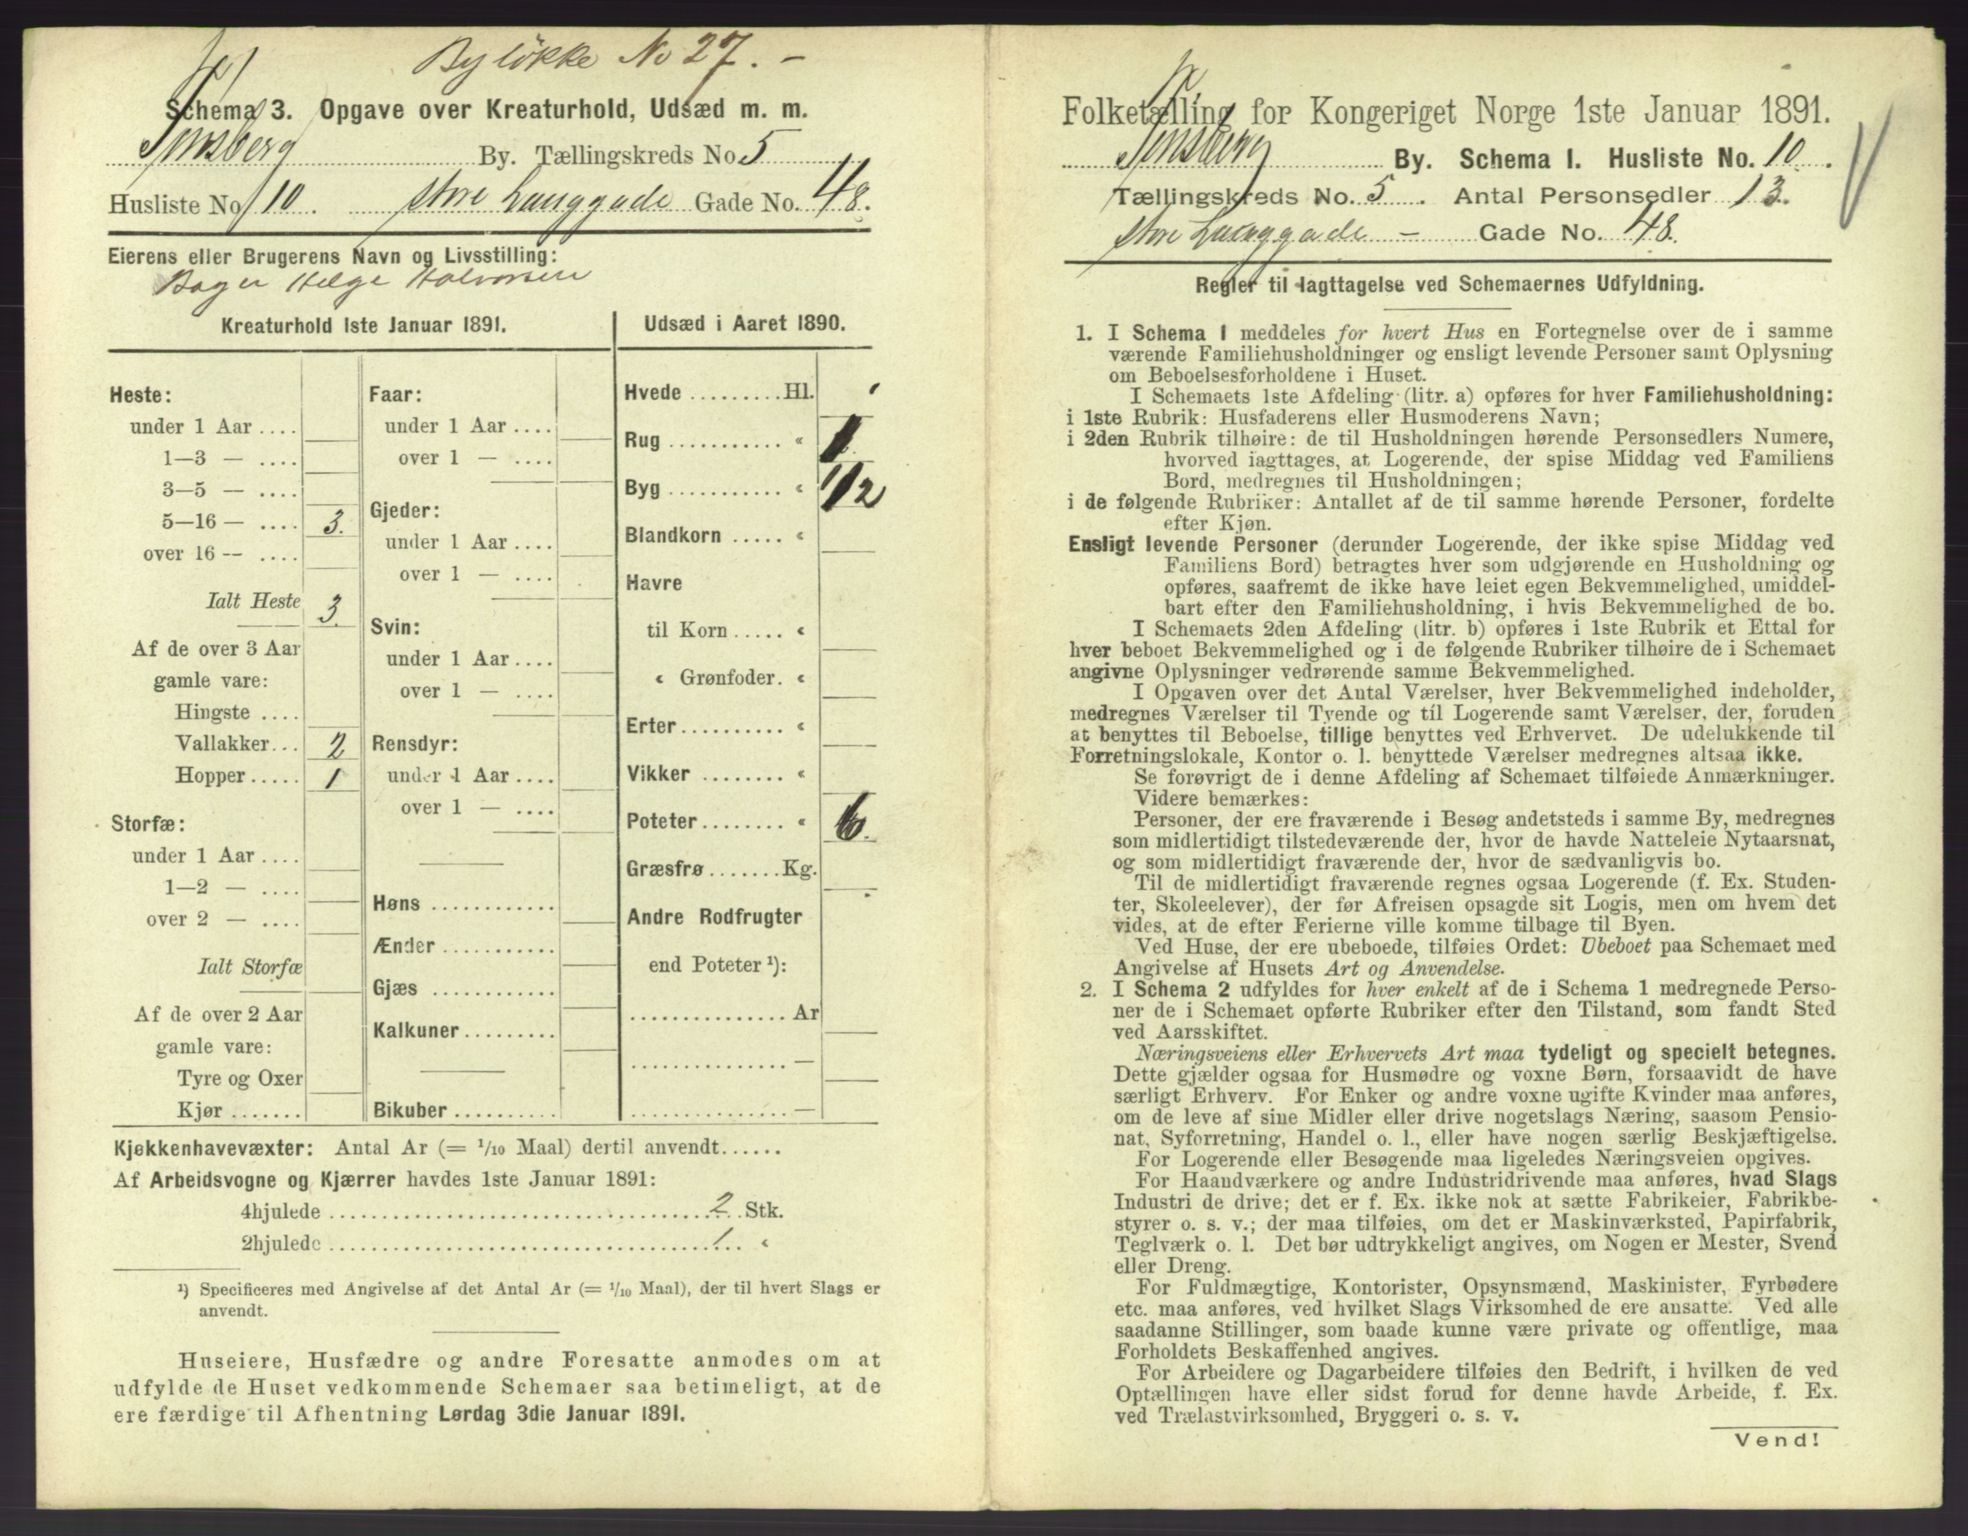 Byløkke No 27. –
Schema 3. Opgave over Kreaturhold, Udsæd m. m.
Tønsberg By. Tællingskreds No 5
Husliste No 10. Store Langgade Gade No. 48.
Eierens eller Brugerens Navn og Livsstilling:
Bager Helge Halvorsen
Kreaturhold 1ste Januar 1891.
Heste:
under 1 Aar ....
1—3 — ....
3—5 — ....
5—16 — .... 3.
over 16 — ....
Ialt Heste 3.
Af de over 3 Aar
gamle vare:
Hingste ....
Vallakker... 2
Hopper..... 1
Storfæ:
under 1 Aar ....
1—2 — ....
over 2 — ....
Ialt Storfæ
Af de over 2 Aar
gamle vare:
Tyre og Oxer
Kjør .......
Faar:
under 1 Aar ....
over 1 — ....
Gjeder:
under 1 Aar ....
over 1 — ....
Svin:
under 1 Aar ....
over 1 — ....
Rensdyr:
under 1 Aar ....
over 1 — ....
Høns ............
Ænder ...........
Gjæs ............
Kalkuner.........
Bikuber ..........
Udsæd i Aaret 1890.
Hvede .........Hl.
Rug ........... « 1
Byg ........... « 1 1/2
Blandkorn ..... «
Havre
til Korn ..... «
« Grønfoder. «
Erter.......... «
Vikker ........ «
Poteter........ « 6.
Græsfrø.......Kg.
Andre Rodfrugter
end Poteter ¹):
................ Ar
................ —
................ —
Kjøkkenhavevæxter: Antal Ar (= 1/10 Maal) dertil anvendt......
Af Arbeidsvogne og Kjærrer havdes 1ste Januar 1891:
4hjulede ........................................ 2 Stk.
2hjulede ........................................ 1 «
¹) Specificeres med Angivelse af det Antal Ar (= 1/10 Maal), der til hvert Slags er
anvendt.
Huseiere, Husfædre og andre Foresatte anmodes om at
udfylde de Huset vedkommende Schemaer saa betimeligt, at de
ere færdige til Afhentning Lørdag 3die Januar 1891.
Folketælling for Kongeriget Norge 1ste Januar 1891.
Tønsberg By. Schema I. Husliste No. 10.
Tællingskreds No. 5. Antal Personsedler 13.
Store Langgade – Gade No. 48.
Regler til Iagttagelse ved Schemaernes Udfyldning.
1. I Schema I meddeles for hvert Hus en Fortegnelse over de i samme
værende Familiehusholdninger og ensligt levende Personer samt Oplysning
om Beboelsesforholdene i Huset.
I Schemaets 1ste Afdeling (litr. a) opføres for hver Familiehusholdning:
i 1ste Rubrik: Husfaderens eller Husmoderens Navn;
i 2den Rubrik tilhøire: de til Husholdningen hørende Personsedlers Numere,
hvorved iagttages, at Logerende, der spise Middag ved Familiens
Bord, medregnes til Husholdningen;
i de følgende Rubriker: Antallet af de til samme hørende Personer, fordelte
efter Kjøn.
Ensligt levende Personer (derunder Logerende, der ikke spise Middag ved
Familiens Bord) betragtes hver som udgjørende en Husholdning og
opføres, saafremt de ikke have leiet egen Bekvemmelighed, umiddel-
bart efter den Familiehusholdning, i hvis Bekvemmelighed de bo.
I Schemaets 2den Afdeling (litr. b) opføres i 1ste Rubrik et Ettal for
hver beboet Bekvemmelighed og i de følgende Rubriker tilhøire de i Schemaet
angivne Oplysninger vedrørende samme Bekvemmelighed.
I Opgaven over det Antal Værelser, hver Bekvemmelighed indeholder,
medregnes Værelser til Tyende og til Logerende samt Værelser, der, foruden
at benyttes til Beboelse, tillige benyttes ved Erhvervet. De udelukkende til
Forretningslokale, Kontor o. l. benyttede Værelser medregnes altsaa ikke.
Se forøvrigt de i denne Afdeling af Schemaet tilføiede Anmærkninger.
Videre bemærkes:
Personer, der ere fraværende i Besøg andetsteds i samme By, medregnes
som midlertidigt tilstedeværende der, hvor de havde Natteleie Nytaarsnat,
og som midlertidigt fraværende der, hvor de sædvanligvis bo.
Til de midlertidigt fraværende regnes ogsaa Logerende (f. Ex. Studen-
ter, Skoleelever), der før Afreisen opsagde sit Logis, men om hvem det
vides, at de efter Ferierne ville komme tilbage til Byen.
Ved Huse, der ere ubeboede, tilføies Ordet: Ubeboet paa Schemaet med
Angivelse af Husets Art og Anvendelse.
2. I Schema 2 udfyldes for hver enkelt af de i Schema 1 medregnede Perso-
ner de i Schemaet opførte Rubriker efter den Tilstand, som fandt Sted
ved Aarsskiftet.
Næringsveiens eller Erhvervets Art maa tydeligt og specielt betegnes.
Dette gjælder ogsaa for Husmødre og voxne Børn, forsaavidt de have
særligt Erhverv. For Enker og andre voxne ugifte Kvinder maa anføres,
om de leve af sine Midler eller drive nogetslags Næring, saasom Pensio-
nat, Syforretning, Handel o. l., eller have nogen særlig Beskjæftigelse.
For Logerende eller Besøgende maa ligeledes Næringsveien opgives.
For Haandværkere og andre Industridrivende maa anføres, hvad Slags
Industri de drive; det er f. Ex. ikke nok at sætte Fabrikeier, Fabrikbe-
styrer o. s. v.; der maa tilføies, om det er Maskinværksted, Papirfabrik,
Teglværk o. l. Det bør udtrykkeligt angives, om Nogen er Mester, Svend
eller Dreng.
For Fuldmægtige, Kontorister, Opsynsmænd, Maskinister, Fyrbødere
etc. maa anføres, ved hvilket Slags Virksomhed de ere ansatte. Ved alle
saadanne Stillinger, som baade kunne være private og offentlige, maa
Forholdets Beskaffenhed angives.
For Arbeidere og Dagarbeidere tilføies den Bedrift, i hvilken de ved
Optællingen have eller sidst forud for denne havde Arbeide, f. Ex.
ved Trælastvirksomhed, Bryggeri o. s. v.
Vend!